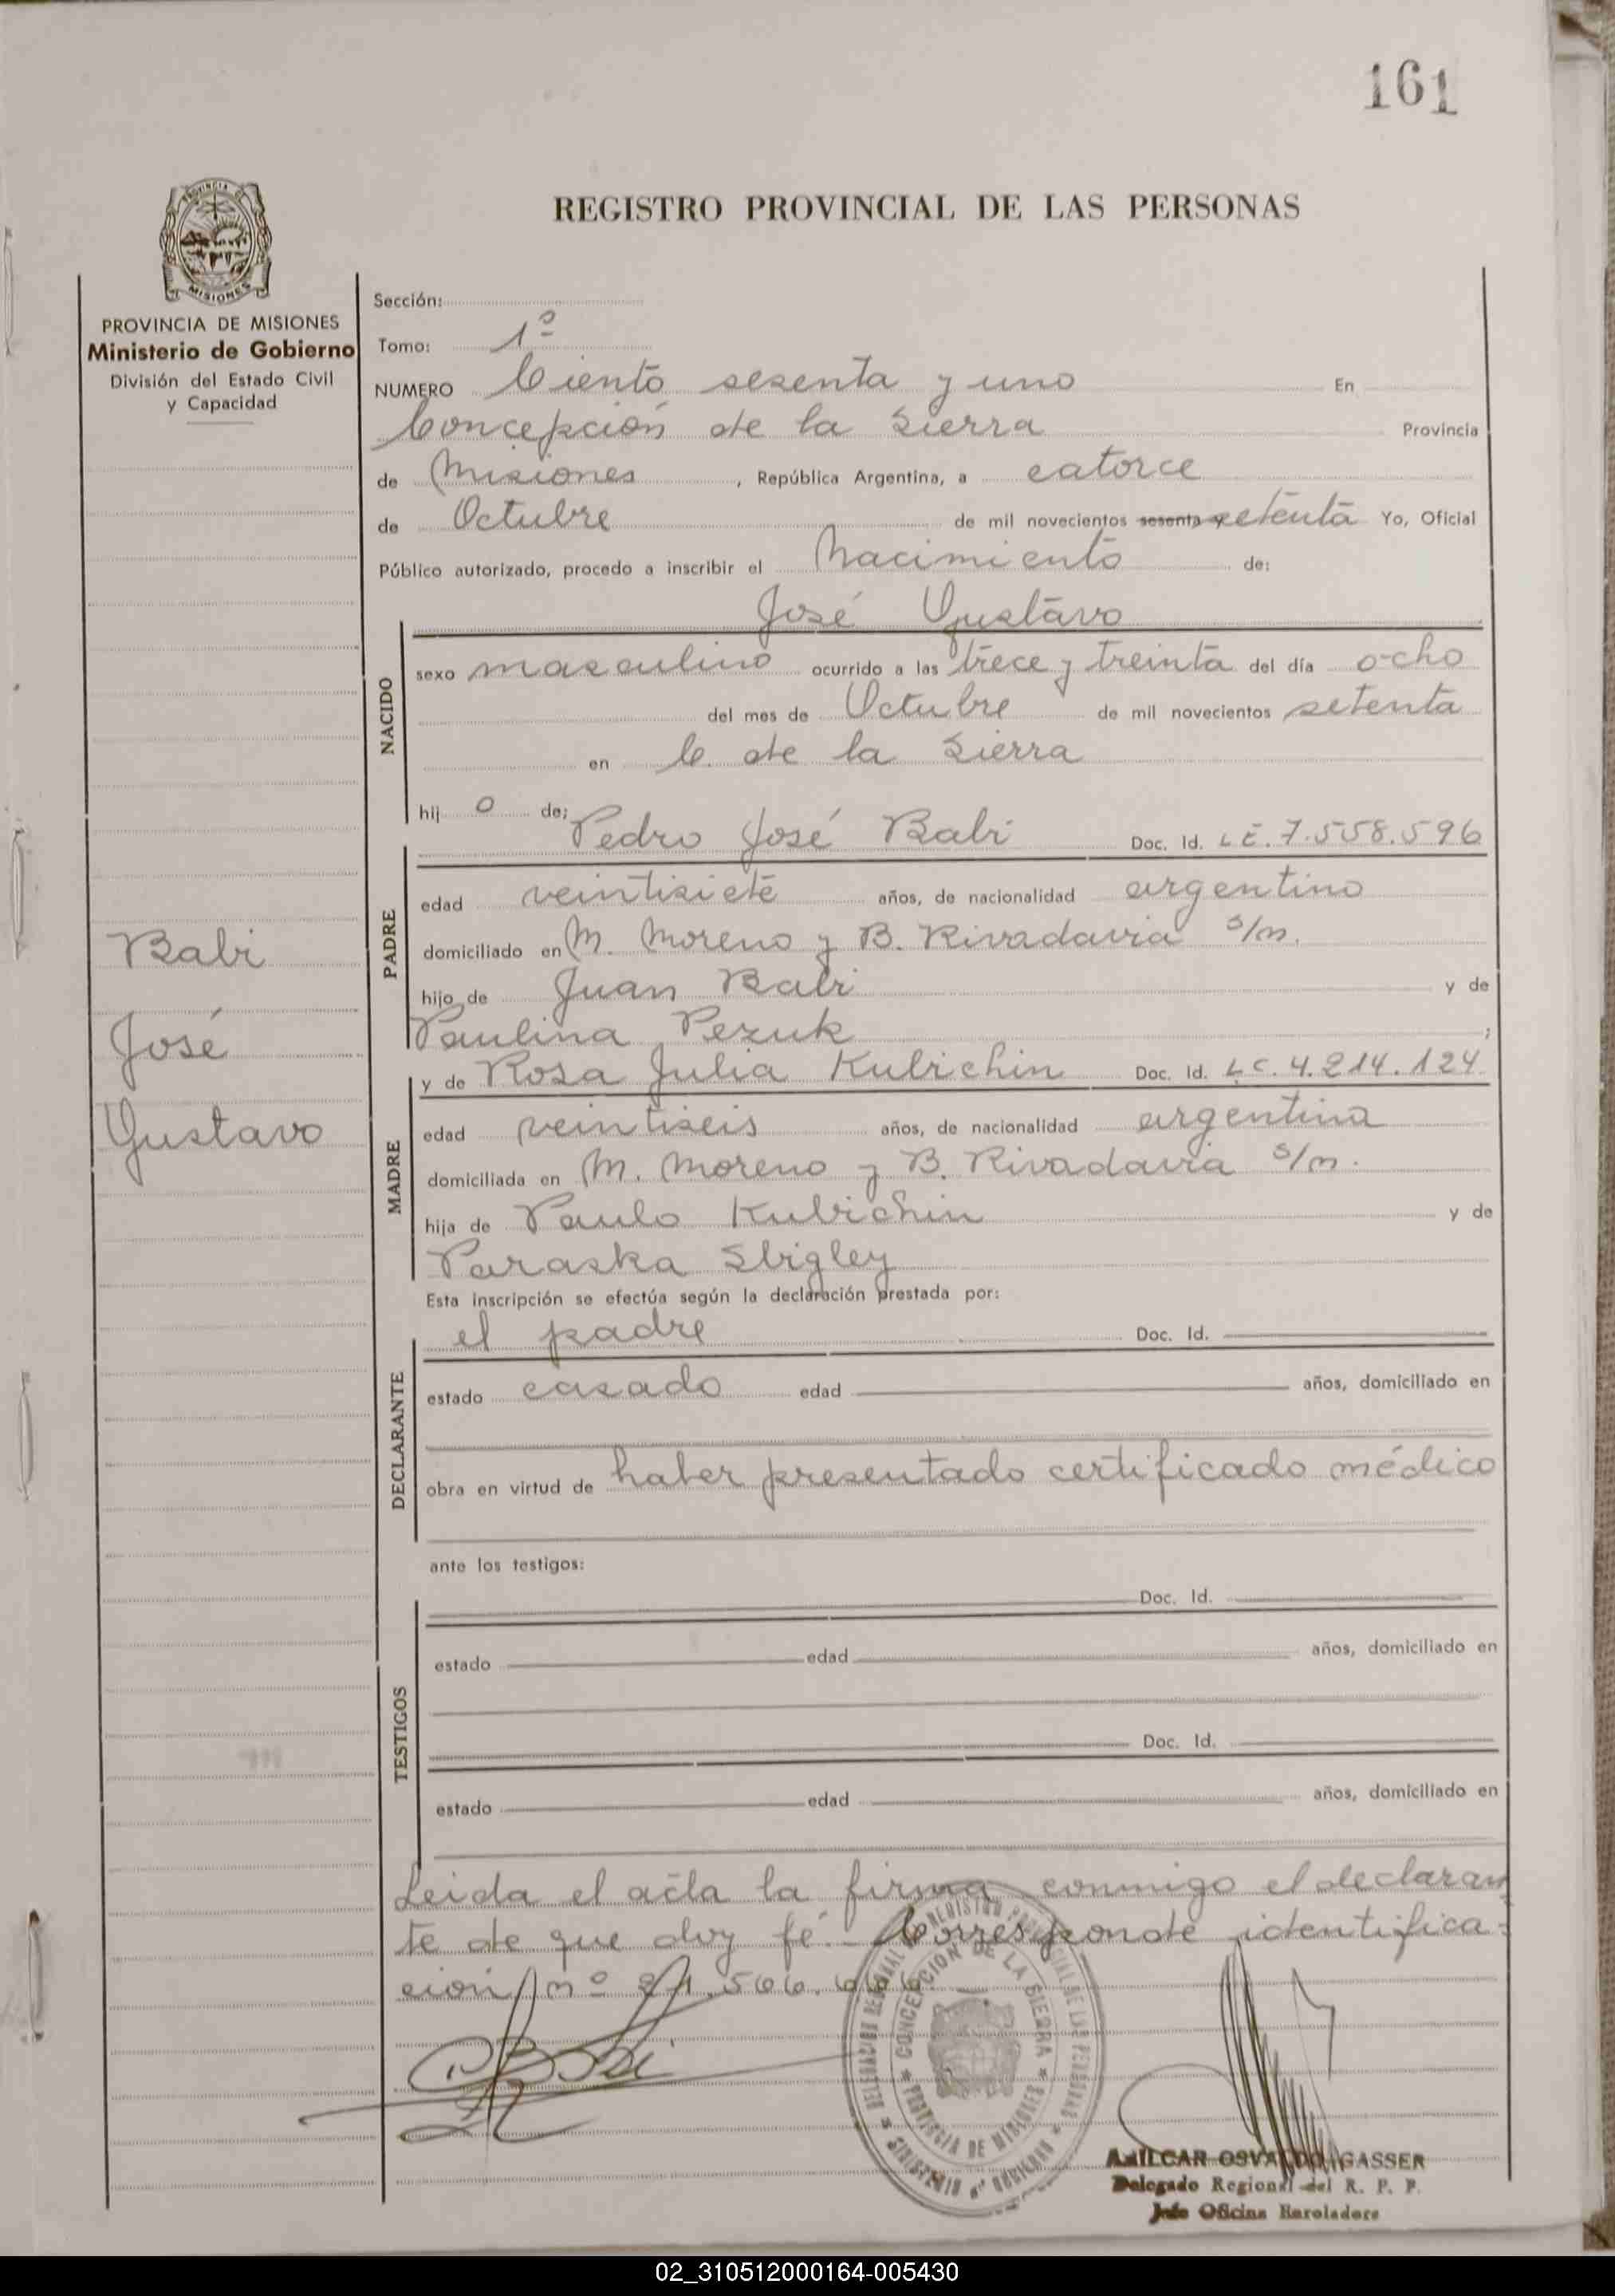 161
REGISTRO PROVINCIAL DE LAS PERSONAS
PROVINCIA DE
MISIONES
PROVINCIA DE MISIONES
Ministerio de Gobierno
División del Estado Civil
y Capacidad
Babi
José
Gustavo
Sección:
Tomo: 1º
NUMERO Ciento sesenta y uno En
Concepción de la Sierra Provincia
de Misiones, República Argentina, a catorce
de Octubre de mil novecientos sesenta y setenta Yo, Oficial
Público autorizado, procedo a inscribir el Nacimiento de:
José Gustavo
NACIDO
sexo masculino ocurrido a las trece y treinta del día ocho
del mes de Octubre de mil novecientos setenta
en C. de la Sierra
hijo de:
Pedro José Babi Doc. Id. L E. 7.558.596
PADRE
edad veintisiete años, de nacionalidad argentino
domiciliado en M. Moreno y B. Rivadavia s/n.
hijo de Juan Babi y de
Paulina Pezuk;
y de Rosa Julia Kubichin Doc. Id. L C. 4.214.124
MADRE
edad veintiseis años, de nacionalidad argentina
domiciliada en M. Moreno y B. Rivadavia s/n.
hija de Paulo Kubichin y de
Paraska Sbigley
Esta inscripción se efectúa según la declaración prestada por:
el padre Doc. Id.
DECLARANTE
estado casado edad años, domiciliado en
obra en virtud de haber presentado certificado médico
ante los testigos:
Doc. Id.
TESTIGOS
estado edad años, domiciliado en
Doc. Id.
estado edad años, domiciliado en
Leida el acta la firma conmigo el declaran
te de que doy fé.- Corresponde identifica-
cion nº 21.566.
CONCEPCION DE LA SIERRA
PROVINCIA DE MISIONES
AMILCAR OSVALDO GASSER
Delegado Regional del R. P. P.
Jefe Oficina Enroladora
02_310512000164-005430